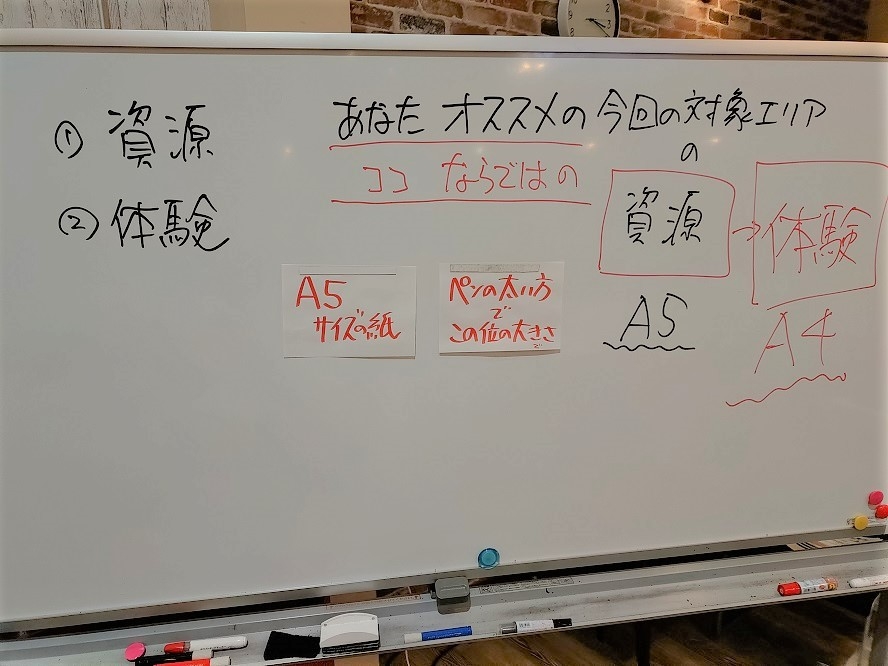 ① 資源
② 体験
あなた オススメの 今回の対象エリア
の
ココ ならではの
資源 → 体験
A5
A4
A5
サイズの紙
ペンの太い方
で
この位の大きさ
で